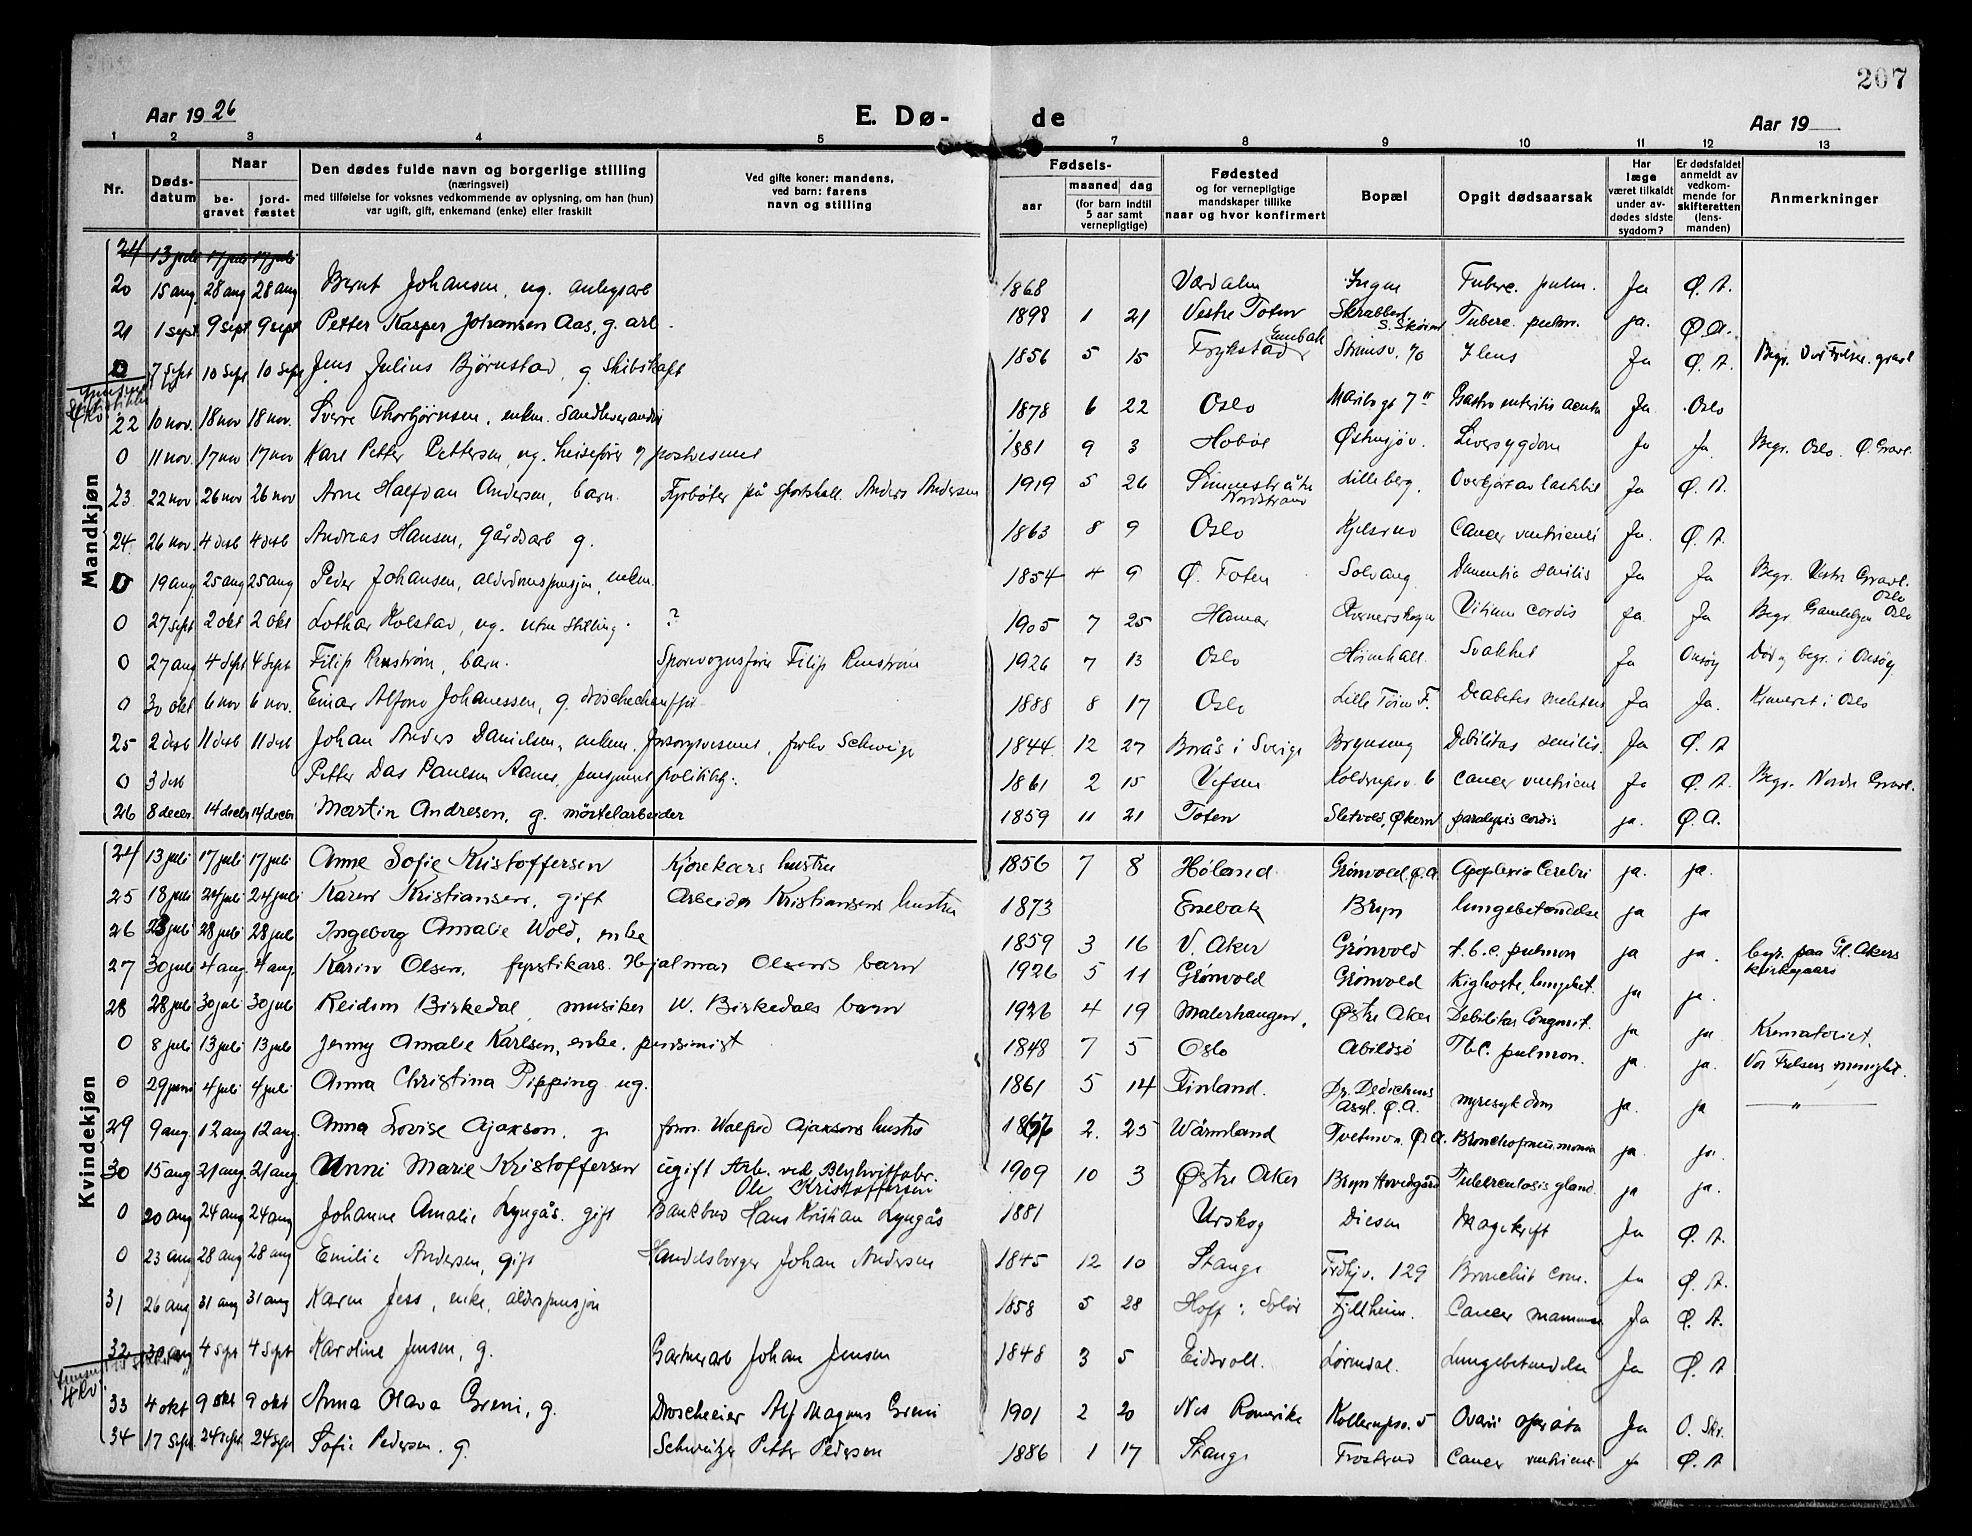 207
Aar 1926 E. Dø- de Aar 19
1 2 3 4 5 7 8 9 10 11 12 13
Nr. Døds-datum Naar be-gravet jord-fæstet Den dødes fulde navn og borgerlige stilling (næringsvei) med tilføielse for voksnes vedkommende av oplysning, om han (hun) var ugift, gift, enkemand (enke) eller fraskilt Ved gifte koner: mandens, ved barn: farens navn og stilling Fødsels- aar maaned dag (for barn indtil 5 aar samt vernepligtige) Fødested og for vernepligtige mandskaper tillike naar og hvor konfirmert Bopæl Opgit dødsaarsak Har læge været tilkaldt under av-dødes sidste sygdom? Er dødsfaldet anmeldt av vedkom-mende for skifteretten (lens-manden) Anmerkninger
Mandkjøn
24 13 juli 17 juli 17 juli
20 15 aug. 28 aug 28 aug Bernt Johansen, ug. anlegsarb 1868 Værdalen Tuberc. pulm. Ja Ø. A.
21 1 sept 9 sept 9 sept Petter Kasper Johansen Aas, g. arb. 1898 1 21 Vestre Toten Tuberc. pulm. ja. Ø.A.
0 7 sept 10 sept 10 sept Jens Julius Bjørnstad, g. Skibskaft 1856 5 15 Strømsv. 70 Ileus Ja Ø. A. Begr. Vor Frelse. gravl
22 10 nov. 18 nov 18 nov. Sverre Thorbjørnsen, enkem. 1878 6 22 Oslo Maribogt 7 Gastro enteritis acuta Ja Oslo
0 11 nov. 17 nov 17 nov Karl Petter Pettersen, ug. heisefører 1881 9 3 Hobøl Østensjøv. Leversygdom Ja Ja. Begr. Oslo. Ø. Gravl.
23 22 nov 26 nov 26 nov Arne Halfdan Andersen, barn. Fyrbøter på Anders Andersen 1919 5 26 Nordstrand Lilleberg. Overkjørt av lastebil Ja Ø. A.
24. 26 nov. 4 desb 4 desb Andreas Hansen, Gårdsarb g. 1863 8 9 Oslo Kjelsrud Cancer ventriculi Ja. Ø. A.
0 19 aug. 25 aug 25 aug Peder Johansen, enkem. 1854 4 9 Ø. Toten Solvang Dementia senilis Ja Ja Begr. Vestre Gravl. Oslo
0 27 sept 2 okt 2 okt Lothar Kolstad, ug. uten Stilling. ? 1905 7 25 Hamar Vitium cordis Ja Ja Begr. Gamlebyen Oslo
0 27 aug 4 sept 4 sept Filip Renstrøm, barn. Sporvognsfører Filip Renstrøm 1926 7 13 Oslo Høienhall. Svakhet Ja Onsøy Død og begr. i Onsøy.
0 30 okt 6 nov 6 nov. Einar Alfons Johanessen, g. droschechauffør 1888 8 17 Oslo Lille Tøien F. Deabetes meletus Ja Ja. Kremeret i Oslo
25 2 desb 11 desb 11 desb Johan Anders Danielsen, enkem. 1844. 12 27 Borås i Sverige Brynseng Debilitas senilis. Ja Ø. A
0 3 desb Petter Das Paulsen Aanes, 1861 2 15 Vefsen Cancer ventricul Ja Ø. A. Begr. Nordre Gravl.
26 8 decbr. 14 decbr 14 decbr Martin Andresen, g. mørtelarbeider 1859 11 21 Toten Sletvold, Økern paralysis cordis ja. Ø.A.
Kvindekjøn
24 13 juli 17 juli 17 juli Anne Sofie Kristoffersen Kjørekars hustru 1856 7 8 Høland. Grønvold, Ø.A. Apoplexia Cerebri ja. ja.
25 18 juli 24 juli 24 juli Karen Kristiansen, gift Arbeider Kristiansens hustru 1873 Enebak Bryn lungebetændelse ja ja
26 23 juli 28 juli 28 juli Ingeborg Amalie Wold, enke 1859 3 16 V. Aker Grønvold t.b.c. pulmon ja ja. begr. paa Gl. Akers kirkegaard
27 30 juli 4 aug. 4 aug. Karin Olsen, fyrstikarb. Hjalmar Olsens barn 1926 5 11 Grønvold Grønvold Kighoste, lungebet. ja ja.
28 28 juli 30 juli 30 juli Reidun Birkedal musiker W. Birkedals barn 1926 4 19 Malerhaugen, Østre Aker Debilitas Congenit. ja ja Krematoriet.
0 8 juli 13 juli 13 juli Jenny Amalie Karlsen, enke. pensionist 1848 7 5 Oslo Abildsø Tbc. pulmon. ja ja. Vor Frelsers menighet.
0 29 juni 4 juli 4 juli Anna Christina Pipping ug. 1861 5 14 Finland. Dr. Dedichens Asyl. Ø.A. nyresykdom ja. ja — " —
29 9 aug. 12 aug 12 aug. Anna Lovise Ajaxson, g. form. Walfrid Ajaxsons hustru 1867 2. 25 Wärmland Tvetenv. Ø.A. Bronchopneumonia ja. ja.
30 15 aug 21 aug. 21 aug. Unni Marie Kristoffersen ugift Arb. ved Blyhvittfabr. Ole Kristoffersen 1909 10 3 Østre Aker Bryn Hovedgård Tuberculosis gland. ja ja.
0 20 aug 24 aug 24 aug Johanne Amalie Lyngås. gift Bankbud Hans Kristian Lyngås 1881 Urskog Diesen Magekræft Ja Ø. A.
0 23 aug 28 aug 28 aug Emilie Andersen, gift Handelsborger Johan Andersen 1845 12 10 Stange 129 Bronchit cron. Ja Ø. A.
31 26 aug 31 aug 31 aug Karen Jess, enke, alderspensjon 1858 5 28 Hoff i Solør Fjellheim. Cancer mammae Ja Ø. A.
32 30 aug 4 sept 4 sept Karoline Jensen, g. Gartnerarb Johan Jensen 1848 3 5 Eidsvoll. Lørendal. Lungebetændelse Ja Ø. A
33 4 okt 9 okt 9 okt Anna Olava Greni, g. Droscheeier Alf Magnus Greni 1901 2 20 Nes Romerike 5 Ovarie operata Ja O. Skr.
34 17 sept. 24 sept. 24 sept Sofie Pedersen. g. Schweitzer Petter Pedersen 1886 1 17 Stange Cancer ventricul Ja Ø. A